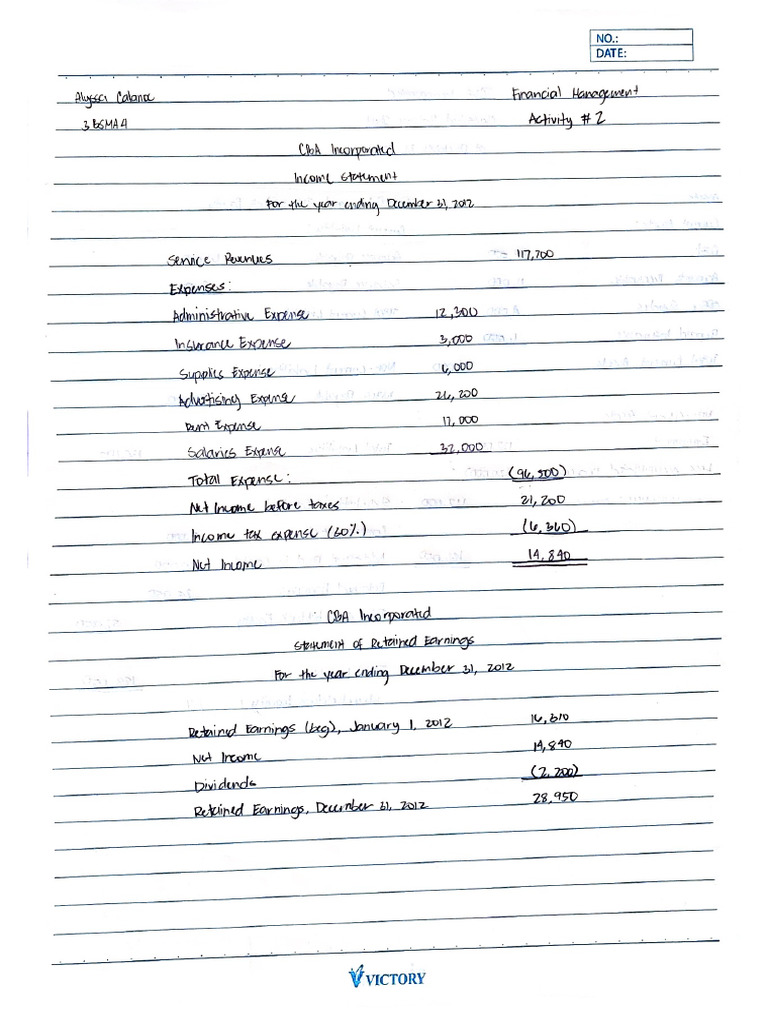 NO.:
DATE:
Alyssa Financial Management
3 BSMA 4 Activity # 2
CBA Incorporated
Income Statement
For the year ending December 31, 2012
Service Revenues 117,700
Expenses:
Administrative Expense 12,300
Insurance Expense 3,000
Supplies Expense 6,000
Advertising Expense 26,200
Rent Expense 17,000
Salaries Expense 32,000
Total Expense: (96,500)
Net Income before taxes 21,200
Income tax expense (30%) (6,360)
Net Income 14,840
CBA Incorporated
Statement of Retained Earnings
For the year ending December 31, 2012
Retained Earnings (beg), January 1, 2012 16,310
Net Income 14,840
Dividends (2,200)
Retained Earnings, December 31, 2012 28,950
VICTORY